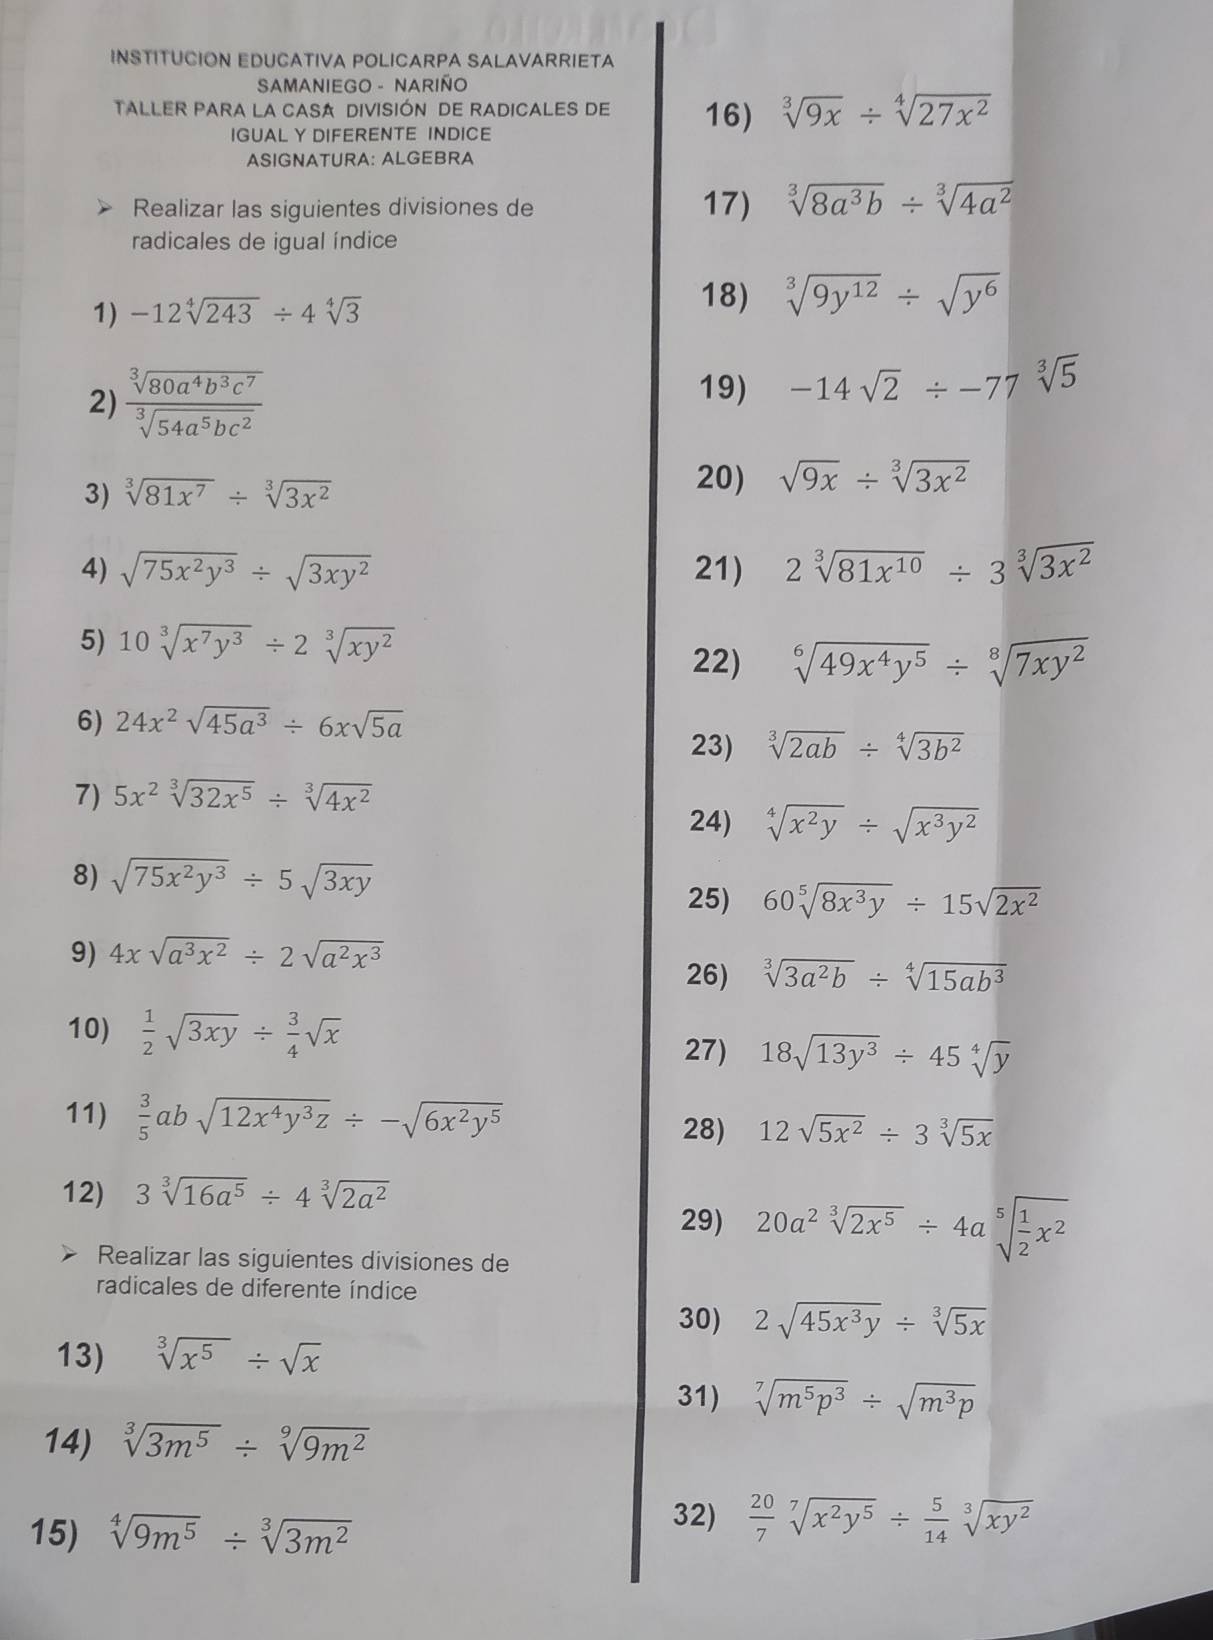 INSTITUCION EDUCATIVA POLICARPA SALAVARRIETA
SAMANIEGO - NARIÑO
TALLER PARA LA CASA DIVISIÓN DE RADICALES DE
IGUAL Y DIFERENTE INDICE
ASIGNATURA: ALGEBRA
➢ Realizar las siguientes divisiones de
radicales de igual índice
1) $-12\sqrt[4]{243} \div 4\sqrt[4]{3}$
2) $\frac{\sqrt[3]{80a^4b^3c^7}}{\sqrt[3]{54a^5bc^2}}$
3) $\sqrt[3]{81x^7} \div \sqrt[3]{3x^2}$
4) $\sqrt{75x^2y^3} \div \sqrt{3xy^2}$
5) $10\sqrt[3]{x^7y^3} \div 2\sqrt[3]{xy^2}$
6) $24x^2\sqrt{45a^3} \div 6x\sqrt{5a}$
7) $5x^2\sqrt[3]{32x^5} \div \sqrt[3]{4x^2}$
8) $\sqrt{75x^2y^3} \div 5\sqrt{3xy}$
9) $4x\sqrt{a^3x^2} \div 2\sqrt{a^2x^3}$
10) $\frac{1}{2}\sqrt{3xy} \div \frac{3}{4}\sqrt{x}$
11) $\frac{3}{5}ab\sqrt{12x^4y^3z} \div -\sqrt{6x^2y^5}$
12) $3\sqrt[3]{16a^5} \div 4\sqrt[3]{2a^2}$
➢ Realizar las siguientes divisiones de
radicales de diferente índice
13) $\sqrt[3]{x^5} \div \sqrt{x}$
14) $\sqrt[3]{3m^5} \div \sqrt[9]{9m^2}$
15) $\sqrt[4]{9m^5} \div \sqrt[3]{3m^2}$
16) $\sqrt[3]{9x} \div \sqrt[4]{27x^2}$
17) $\sqrt[3]{8a^3b} \div \sqrt[3]{4a^2}$
18) $\sqrt[3]{9y^{12}} \div \sqrt{y^6}$
19) $-14\sqrt{2} \div -77\sqrt[3]{5}$
20) $\sqrt{9x} \div \sqrt[3]{3x^2}$
21) $2\sqrt[3]{81x^{10}} \div 3\sqrt[3]{3x^2}$
22) $\sqrt[6]{49x^4y^5} \div \sqrt[8]{7xy^2}$
23) $\sqrt[3]{2ab} \div \sqrt[4]{3b^2}$
24) $\sqrt[4]{x^2y} \div \sqrt{x^3y^2}$
25) $60\sqrt[5]{8x^3y} \div 15\sqrt{2x^2}$
26) $\sqrt[3]{3a^2b} \div \sqrt[4]{15ab^3}$
27) $18\sqrt{13y^3} \div 45\sqrt[4]{y}$
28) $12\sqrt{5x^2} \div 3\sqrt[3]{5x}$
29) $20a^2\sqrt[3]{2x^5} \div 4a\sqrt[5]{\frac{1}{2}x^2}$
30) $2\sqrt{45x^3y} \div \sqrt[3]{5x}$
31) $\sqrt[7]{m^5p^3} \div \sqrt{m^3p}$
32) $\frac{20}{7}\sqrt[7]{x^2y^5} \div \frac{5}{14}\sqrt[3]{xy^2}$